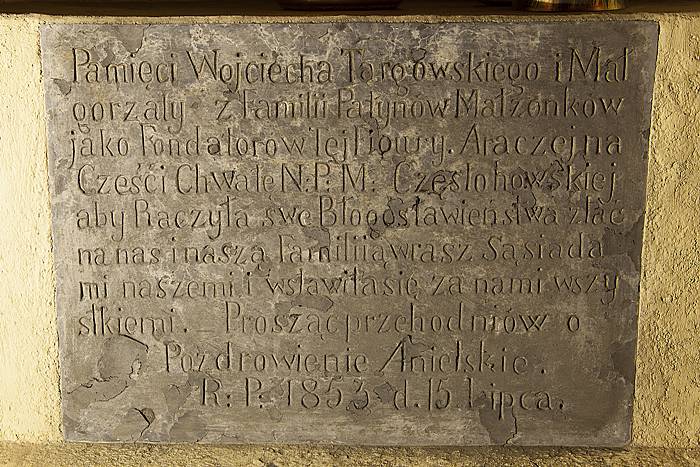 Pamięci Wojciecha Targowskiego i Mał
gorzaty z Familii Patynow Małzonkow
jako Fondatorow tej Figury. Araczej na
Cześci Chwałe N. P. M. Częstohowskiej
aby Raczyła swe Błogosławieństwa zlać
na nas i naszą Familiią wrasz Sąsiada
mi naszemi i wstawiła się za nami wszy
stkiemi. – Prosząc przehodniów o
Pozdrowienie Anielskie.
R: P: 1853 d. 15 Lipca.